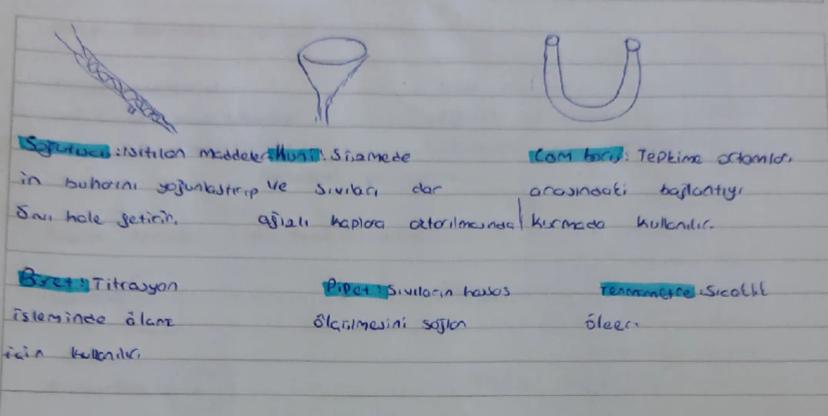 Soğutucu: Isıtılan maddeler
in buharını yoğunlaştırıp
Sıvı hale getirir.
Huni: Süzmede
ve sıvıları dar
ağızlı kaplara aktarılmasında
Cam boru: Tepkime ortamları
arasındaki bağlantıyı
kurmada kullanılır.
Büret: Titrasyon
işleminde ölçme
için kullanılır.
Pipet: Sıvıların hassas
ölçülmesini sağlar
Termometre: Sıcaklık
ölçer.